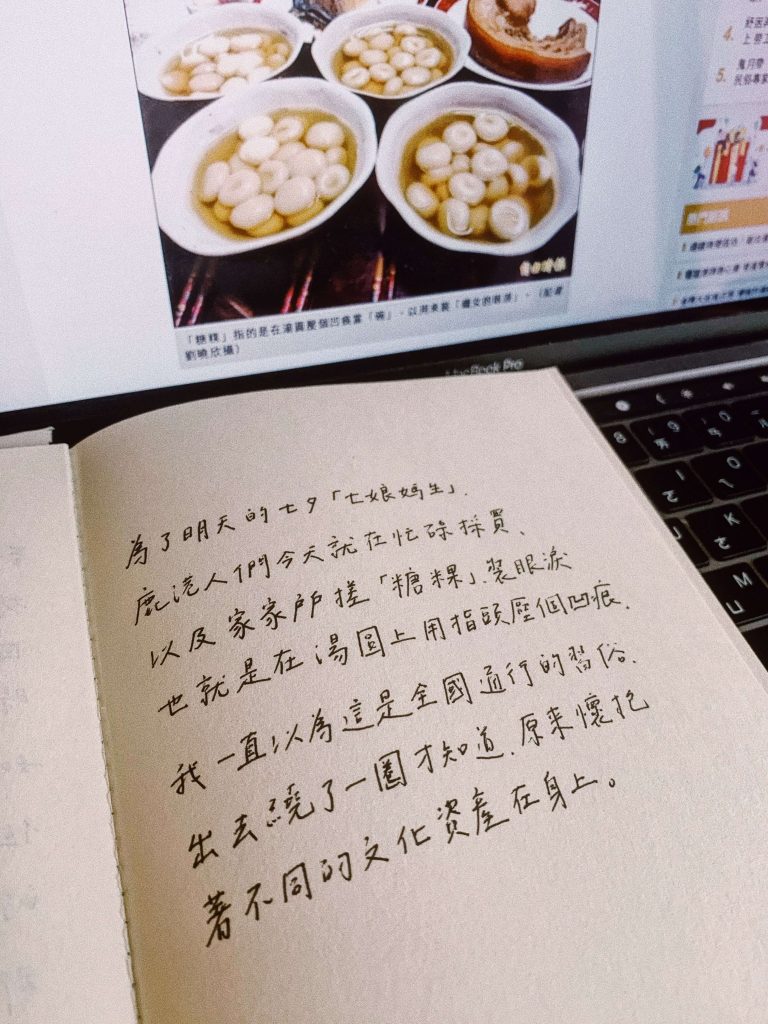 4. 
5. 鬼月帶
民俗專家
自由時報
「糖粿」指的是在湯圓壓個凹痕當「碗」，以用來裝「織女的眼淚」。（記者
劉曉欣攝）
MacBook Pro
為了明天的七夕「七娘媽生」.
鹿港人們今天就在忙碌採買、
以及家家戶戶搓「糖粿」、裝眼淚
也就是在湯圓上用指頭壓個凹痕.
我一直以為這是全國通行的習俗.
出去繞了一圈才知道.原來懷抱
著不同的文化資產在身上。